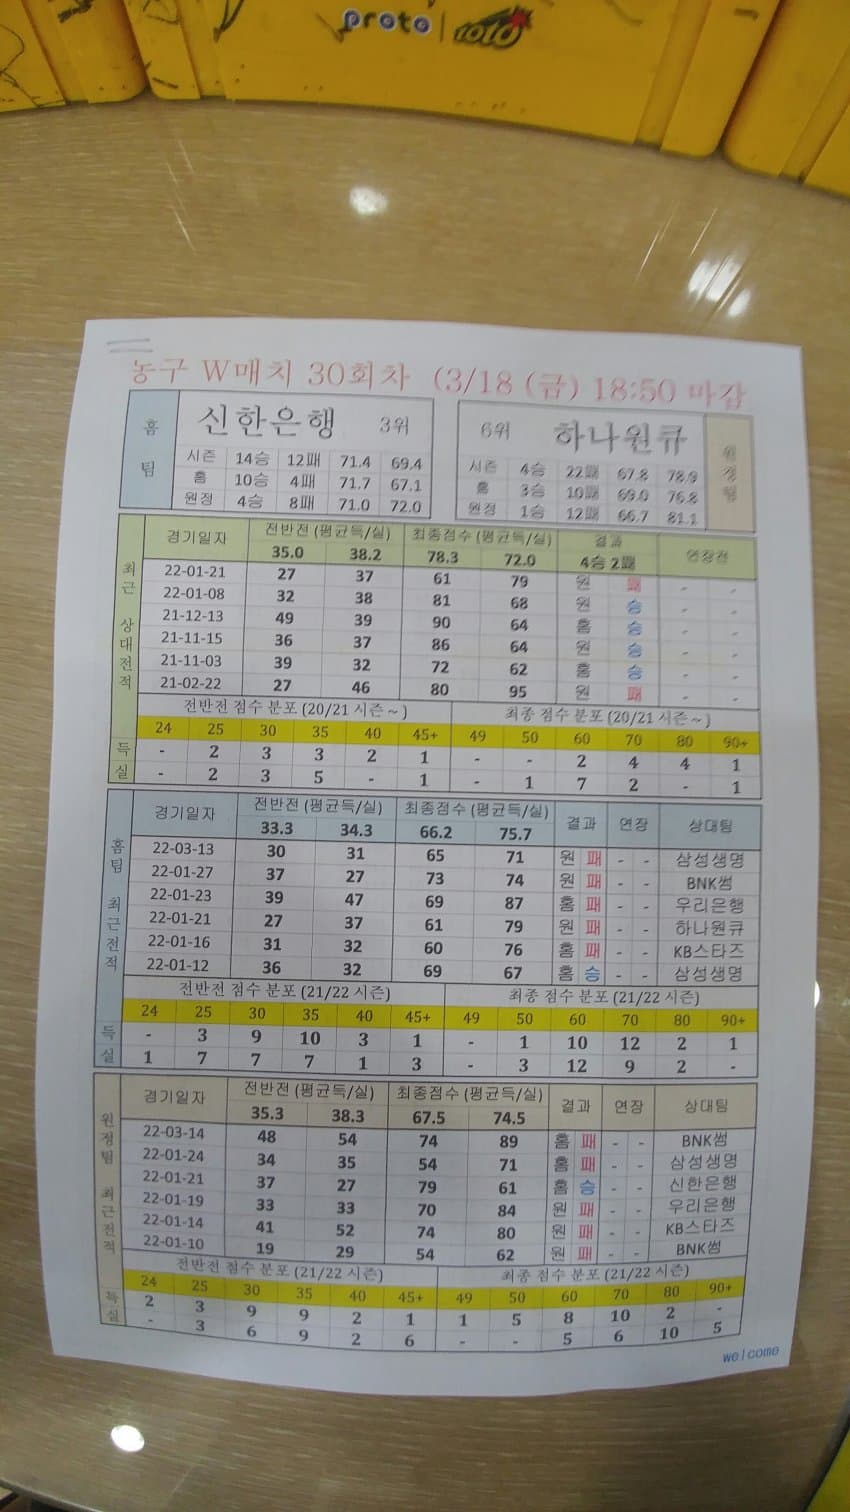 proto
농구 W매치 30회차 (3/18 (금) 18:50 마감
홈팀 신한은행 3위
시즌 14승 12패 71.4 69.4
홈 10승 4패 71.7 67.1
원정 4승 8패 71.0 72.0
6위 하나원큐 원정팀
시즌 4승 22패 67.8 78.9
홈 3승 10패 69.0 76.8
원정 1승 12패 66.7 81.1
최근 상대전적
경기일자 전반전 (평균득/실) 최종점수 (평균득/실) 결과 연장전
35.0 38.2 78.3 72.0 4승 2패
22-01-21 27 37 61 79 원 패 - -
22-01-08 32 38 81 68 원 승 - -
21-12-13 49 39 90 64 홈 승 - -
21-11-15 36 37 86 64 원 승 - -
21-11-03 39 32 72 62 홈 승 - -
21-02-22 27 46 80 95 원 패 - -
전반전 점수 분포 (20/21 시즌~) 최종 점수 분포 (20/21 시즌~)
24 25 30 35 40 45+ 49 50 60 70 80 90+
득 - 2 3 3 2 1 - - 2 4 4 1
실 - 2 3 5 - 1 - 1 7 2 - 1
홈팀 최근전적
경기일자 전반전 (평균득/실) 최종점수 (평균득/실) 결과 연장 상대팀
33.3 34.3 66.2 75.7
22-03-13 30 31 65 71 원 패 - - 삼성생명
22-01-27 37 27 73 74 원 패 - - BNK썸
22-01-23 39 47 69 87 홈 패 - - 우리은행
22-01-21 27 37 61 79 원 패 - - 하나원큐
22-01-16 31 32 60 76 홈 패 - - KB스타즈
22-01-12 36 32 69 67 홈 승 - - 삼성생명
전반전 점수 분포 (21/22 시즌) 최종 점수 분포 (21/22 시즌)
24 25 30 35 40 45+ 49 50 60 70 80 90+
득 - 3 9 10 3 1 - 1 10 12 2 1
실 1 7 7 7 1 3 - 3 12 9 2 -
원정팀 최근전적
경기일자 전반전 (평균득/실) 최종점수 (평균득/실) 결과 연장 상대팀
35.3 38.3 67.5 74.5
22-03-14 48 54 74 89 홈 패 - - BNK썸
22-01-24 34 35 54 71 홈 패 - - 삼성생명
22-01-21 37 27 79 61 홈 승 - - 신한은행
22-01-19 33 33 70 84 원 패 - - 우리은행
22-01-14 41 52 74 80 원 패 - - KB스타즈
22-01-10 19 29 54 62 원 패 - - BNK썸
전반전 점수 분포 (21/22 시즌) 최종 점수 분포 (21/22 시즌)
24 25 30 35 40 45+ 49 50 60 70 80 90+
득 2 3 9 9 2 1 1 5 8 10 2 -
실 - 3 6 9 2 6 - - 5 6 10 5
welcome